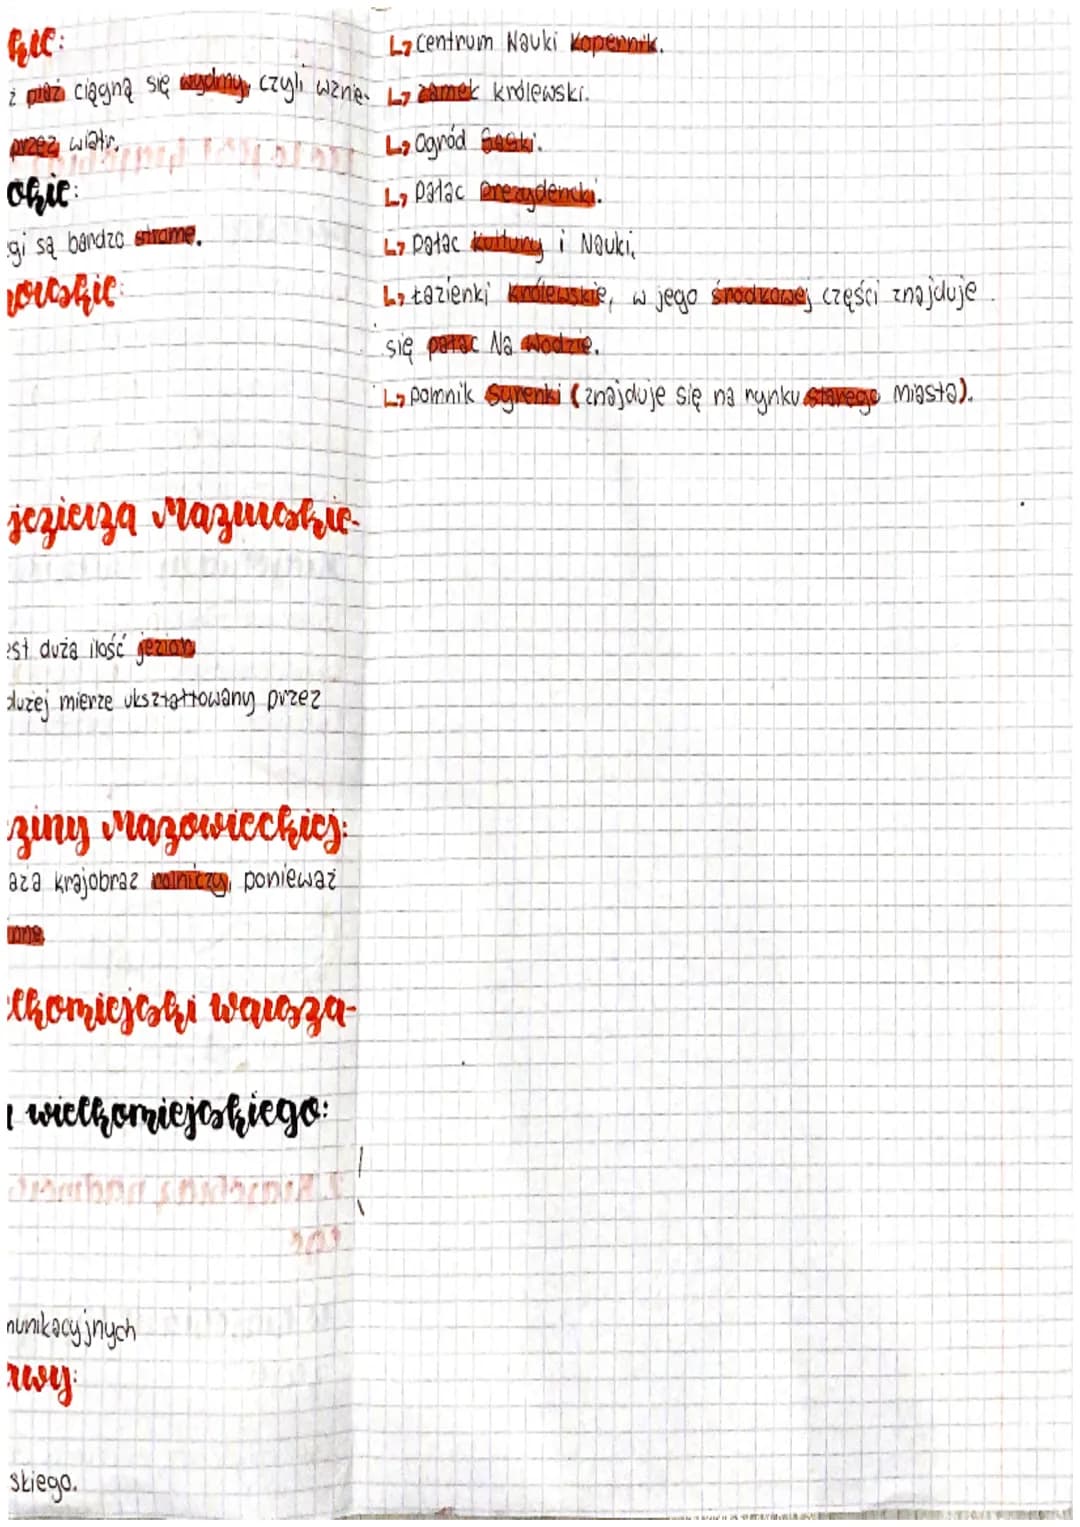 kie:
ż plaż ciągną się wydmy, czyli wznie-
przez wiatr.
okie:
gi są bardzo strome.
rowskie:
jezierza Mazurskie-
est duża ilość jezior
dużej mierze ukształtowany przez
ziny Mazowieckiej:
aża krajobraz rolniczy, ponieważ
elkomiejski warsza-
wielkomiejskiego:
munikacyjnych
awy:
skiego.
↳ Centrum Nauki Kopernik.
↳ zamek królewski.
↳ Ogród Saski.
↳ Pałac Prezydencki.
↳ Pałac Kultury i Nauki.
↳ Łazienki królewskie, w jego środkowej części znajduje
się pałac Na Wodzie.
↳ pomnik Syrenki (znajduje się na rynku starego miasta).